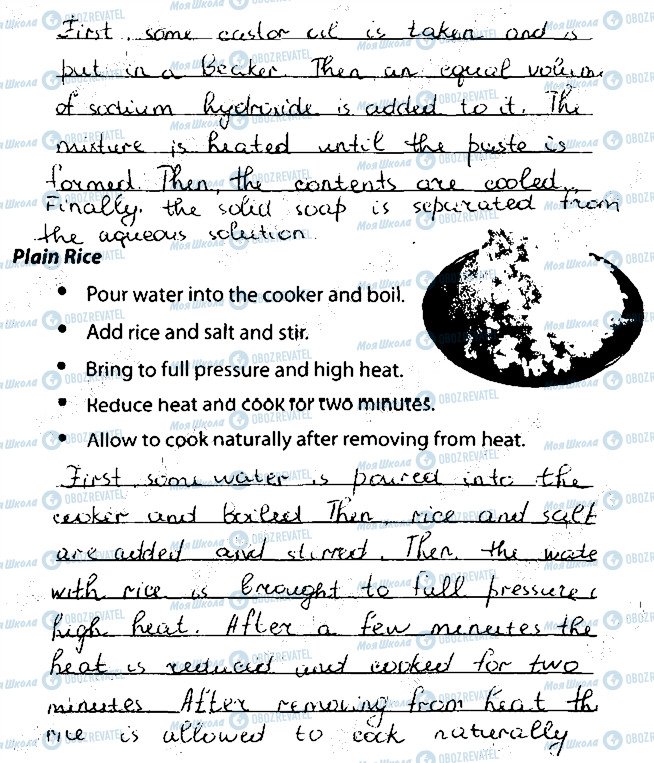 First, some castor oil is taken and is
put in a Beaker. Then an equal volume
of sodium hydroxide is added to it. The
mixture is heated until the paste is
formed. Then, the contents are cooled.
Finally, the solid soap is separated from
the aqueous solution
Plain Rice
• Pour water into the cooker and boil.
• Add rice and salt and stir.
• Bring to full pressure and high heat.
• Reduce heat and cook for two minutes.
• Allow to cook naturally after removing from heat.
First, some water is poured into the
cooker and boiled Then, rice and salt
are added and stirred. Then, the wate
with rice is brought to full pressure
high heat. After a few minutes the
heat is reduced and cooked for two
minutes. After removing from heat th
rice is allowed to cook naturally